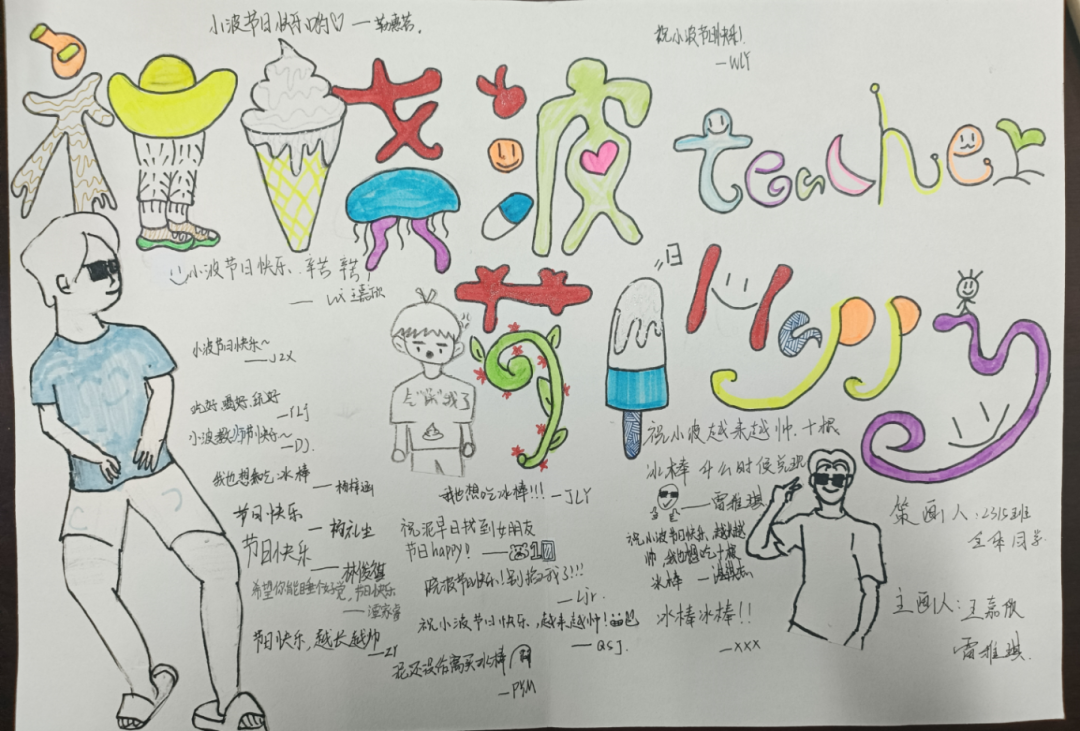 小波节日快乐哟♡ —
祝小波节日快乐!
—WLY
祝黄波 teacher
小波节日快乐、辛苦辛苦!
— 王嘉欣
节日 Happy
小波节日快乐~
—JZX
吃好,喝好,玩好
小波教师节快乐~
—DJ.
我也想吃冰棒
节日快乐
节日快乐
—林俊
希望你能睡个好觉,节日快乐
节日快乐,越长越帅
—ZY
气
我了
我也想吃冰棒!!! —JLY
祝泥早日找到女朋友
节日happy!
晓波节日快乐!别掐我了!!!
—Ljr.
祝小波节日快乐,越来越帅!
—QSJ.
泥还没给离买冰棒
—PYM
祝小波越来越帅,十根
冰棒什么时候兑现
—雷雅琪
祝小波节日快乐,越来越
帅,我也想吃十根
冰棒
冰棒冰棒!!
—XXX
策画人:2315班
全体同学
主画人:王嘉欣
雷雅琪